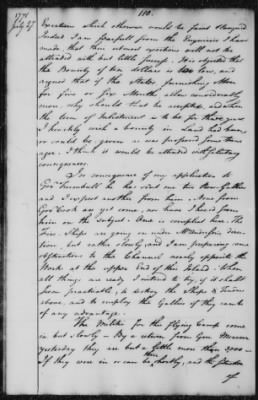 110.
1776
July 27
Exertions which otherwise would be faint & beyond
Indeed I am fearfull from the Enquiries I have
made that their utmost exertions will not be
attended with but little success. It is objected that
the Bounty of ten dollars is too low, and
argued that if the States furnishing Men
for five or six Months allow considerably
more, why should that be accepted, when
the term of Inlistment is to be for three years.
I heartily wish a bounty in Land had been,
or could be given as was proposed some time
ago. I think it would be attended with salutary
consequences.
In consequence of my application to
Govr Trumbull he has sent me two Row Gallies
and I expect another from him. None from
Govr Cook are yet come, nor have I heard from
him on the subject. One is compleat here. The
Fire Ships are going on under Mr Anderson's direc-
tion, but rather slowly, and I am preparing some
obstructions to the Channel nearly opposite the
Works at the upper End of this Island. When
all things are ready I intend to try, if it shall
seem practicable, to destroy the Ships & Tenders
above, and to employ the Gallies if they can be
of any advantage.
The Militia for the flying Camp come
in but slowly. By a return from Genl Mercer
yesterday they are but a little more than 3000
If they were in or can be there shortly, and the situation
of